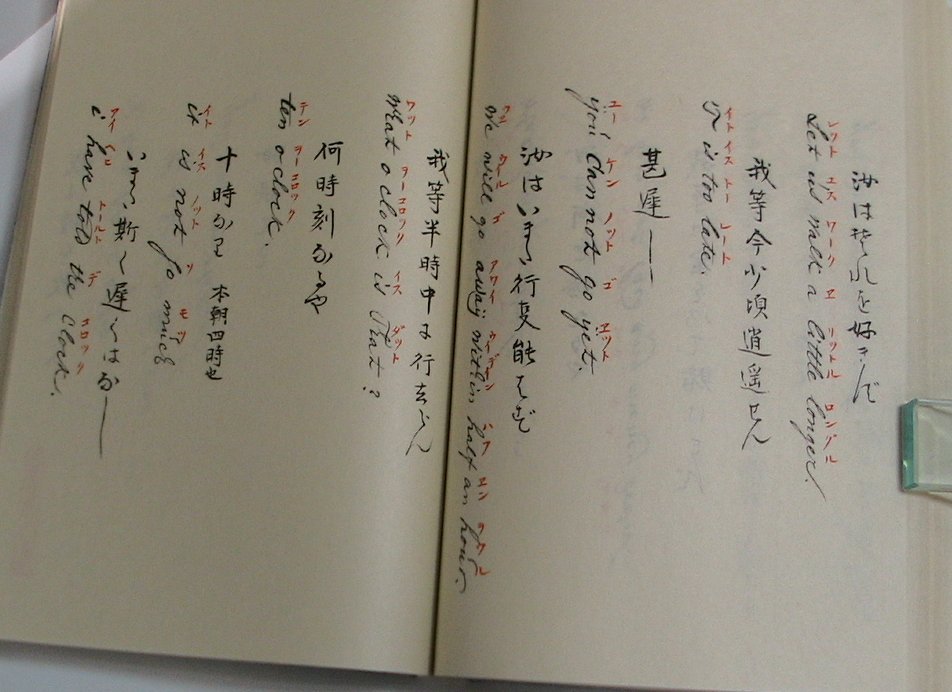 汝は是れを好きしや
レット ユス ワーク エ リットル ロングル
Let us walk a little longer.
我等今少頃逍遥せん
イト イス トー レート
It is too late.
甚遅し
ユー ケン ノット ゴ エット
you can not go yet.
汝はいまだ行事能はず
ウェ ウール ゴ アワイ ウーデーン ハフ エン ヲウル
We will go away within half an hour.
我等半時中に行去らん
ワット ヲーコロック イス ダット
What o clock is That?
何時刻なるや
テン ヲーコロック
ten o clock.
十時なり 本朝四時也
イト イス ノット ソ モッツ
it is not so much
いまだ斯く遅くはなし
アイ トールト デ コロック
i have told the Clock.